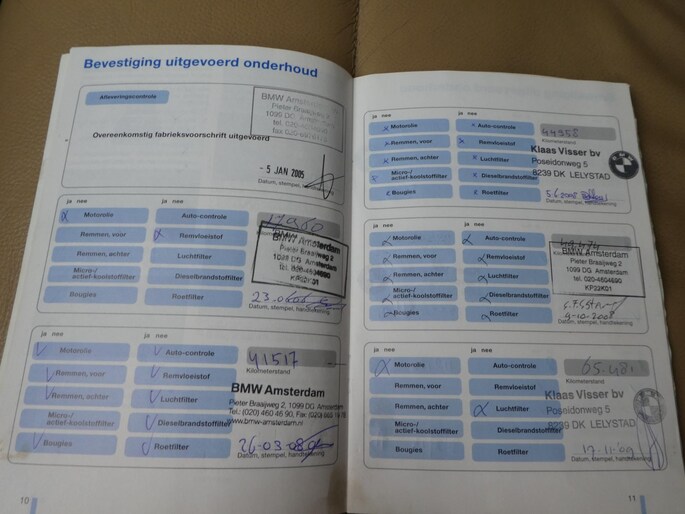 Bevestiging uitgevoerd onderhoud
Afleveringscontrole
BMW Amsterdam
Pieter Braaijweg 2
1099 DG Amsterdam
Overeenkomstig fabrieksvoorschrift uitgevoerd
- 5 JAN 2005
Datum, stempel,
ja nee ja nee
Motorolie Auto-controle
Remmen, voor Remvloeistof
Remmen, achter Luchtfilter
Micro-/
actief-koolstoffilter Dieselbrandstoffilter
Bougies Roetfilter
BMW Amsterdam
Pieter Braaijweg 2
1099 DG Amsterdam
tel. 020-4604690
KP23K01
Datum, stempel, handtekening
ja nee ja nee
Motorolie Auto-controle
Remmen, voor Remvloeistof
Remmen, achter Luchtfilter
Micro-/
actief-koolstoffilter Dieselbrandstoffilter
Bougies Roetfilter
41517
Kilometerstand
BMW Amsterdam
Pieter Braaijweg 2, 1099 DG Amsterdam
Tel.: (020) 460 46 90, Fax (020)
www.bmw-amsterdam.nl
26-03-08
Datum, stempel, handtekening
10
ja nee ja nee
Motorolie Auto-controle
Remmen, voor Remvloeistof
Remmen, achter Luchtfilter
Micro-/
actief-koolstoffilter Dieselbrandstoffilter
Bougies Roetfilter
44958
Kilometerstand
Klaas Visser bv
Poseidonweg 5
8239 DK LELYSTAD
5.6.2008
Datum, stempel, handtekening
ja nee ja nee
Motorolie Auto-controle
Remmen, voor Remvloeistof
Remmen, achter Luchtfilter
Micro-/
actief-koolstoffilter Dieselbrandstoffilter
Bougies Roetfilter
BMW Amsterdam
Pieter Braaijweg 2
1099 DG Amsterdam
tel. 020-4604690
KP23K01
9-10-2008
Datum, stempel, handtekening
ja nee ja nee
Motorolie Auto-controle
Remmen, voor Remvloeistof
Remmen, achter Luchtfilter
Micro-/
actief-koolstoffilter Dieselbrandstoffilter
Bougies Roetfilter
65.481
Kilometerstand
Klaas Visser bv
Poseidonweg 5
8239 DK LELYSTAD
17-11-09
Datum, stempel, handtekening
11